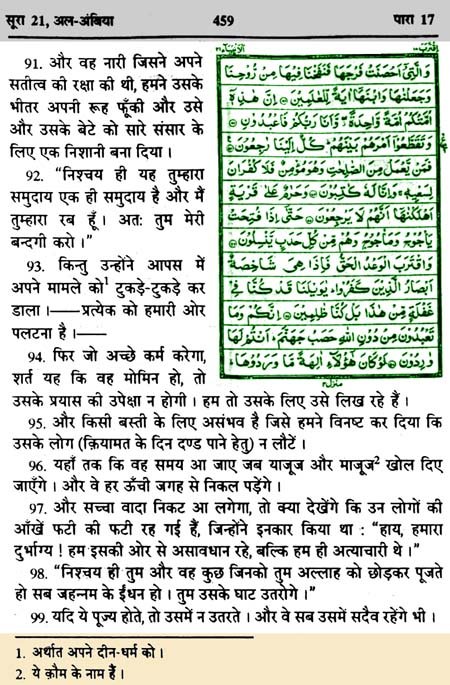 सूरा 21, अल-अंबिया 459 पारा 17
91. और वह नारी जिसने अपने
सतीत्व की रक्षा की थी, हमने उसके
भीतर अपनी रूह फूँकी और उसे
और उसके बेटे को सारे संसार के
लिए एक निशानी बना दिया।
92. “निश्चय ही यह तुम्हारा
समुदाय एक ही समुदाय है और मैं
तुम्हारा रब हूँ। अतः तुम मेरी
बन्दगी करो।”
93. किन्तु उन्होंने आपस में
अपने मामले को¹ टुकड़े-टुकड़े कर
डाला।—— प्रत्येक को हमारी ओर
पलटना है।——
94. फिर जो अच्छे कर्म करेगा,
शर्त यह कि वह मोमिन हो, तो
اِقْتَرَبَ ١٧ الْاَنْبِيَآء ٢١
وَالَّتِيْٓ اَحْصَنَتْ فَرْجَهَا فَنَفَخْنَا فِيْهَا مِنْ رُّوْحِنَا
وَجَعَلْنٰهَا وَابْنَهَآ اٰيَةً لِّلْعٰلَمِيْنَ اِنَّ هٰذِهٖٓ
اُمَّتُكُمْ اُمَّةً وَّاحِدَةً وَّاَنَا رَبُّكُمْ فَاعْبُدُوْنِ
وَتَقَطَّعُوْٓا اَمْرَهُمْ بَيْنَهُمْ كُلٌّ اِلَيْنَا رٰجِعُوْنَ
فَمَنْ يَّعْمَلْ مِنَ الصّٰلِحٰتِ وَهُوَ مُؤْمِنٌ فَلَا كُفْرَانَ
لِسَعْيِهٖ وَاِنَّا لَهٗ كٰتِبُوْنَ وَحَرٰمٌ عَلٰى قَرْيَةٍ
اَهْلَكْنٰهَآ اَنَّهُمْ لَا يَرْجِعُوْنَ حَتّٰٓى اِذَا فُتِحَتْ
يَاْجُوْجُ وَمَاْجُوْجُ وَهُمْ مِّنْ كُلِّ حَدَبٍ يَّنْسِلُوْنَ
وَاقْتَرَبَ الْوَعْدُ الْحَقُّ فَاِذَا هِيَ شَاخِصَةٌ
اَبْصَارُ الَّذِيْنَ كَفَرُوْا يٰوَيْلَنَا قَدْ كُنَّا فِيْ
غَفْلَةٍ مِّنْ هٰذَا بَلْ كُنَّا ظٰلِمِيْنَ اِنَّكُمْ وَمَا
تَعْبُدُوْنَ مِنْ دُوْنِ اللّٰهِ حَصَبُ جَهَنَّمَ اَنْتُمْ لَهَا
وٰرِدُوْنَ لَوْ كَانَ هٰٓؤُلَآءِ اٰلِهَةً مَّا وَرَدُوْهَا
منزل ٤
उसके प्रयास की उपेक्षा न होगी। हम तो उसके लिए उसे लिख रहे हैं।
95. और किसी बस्ती के लिए असंभव है जिसे हमने विनष्ट कर दिया कि
उसके लोग (क़ियामत के दिन दण्ड पाने हेतु) न लौटें।
96. यहाँ तक कि वह समय आ जाए जब याजूज और माजूज² खोल दिए
जाएँगे। और वे हर ऊँची जगह से निकल पड़ेंगे।
97. और सच्चा वादा निकट आ लगेगा, तो क्या देखेंगे कि उन लोगों की
आँखें फटी की फटी रह गई हैं, जिन्होंने इनकार किया था : “हाय, हमारा
दुर्भाग्य ! हम इसकी ओर से असावधान रहे, बल्कि हम ही अत्याचारी थे।”
98. “निश्चय ही तुम और वह कुछ जिनको तुम अल्लाह को छोड़कर पूजते
हो सब जहन्नम के ईंधन हो। तुम उसके घाट उतरोगे।”
99. यदि वे पूज्य होते, तो उसमें न उतरते। और वे सब उसमें सदैव रहेंगे भी।
1. अर्थात अपने दीन-धर्म को।
2. ये क़ौम के नाम हैं।